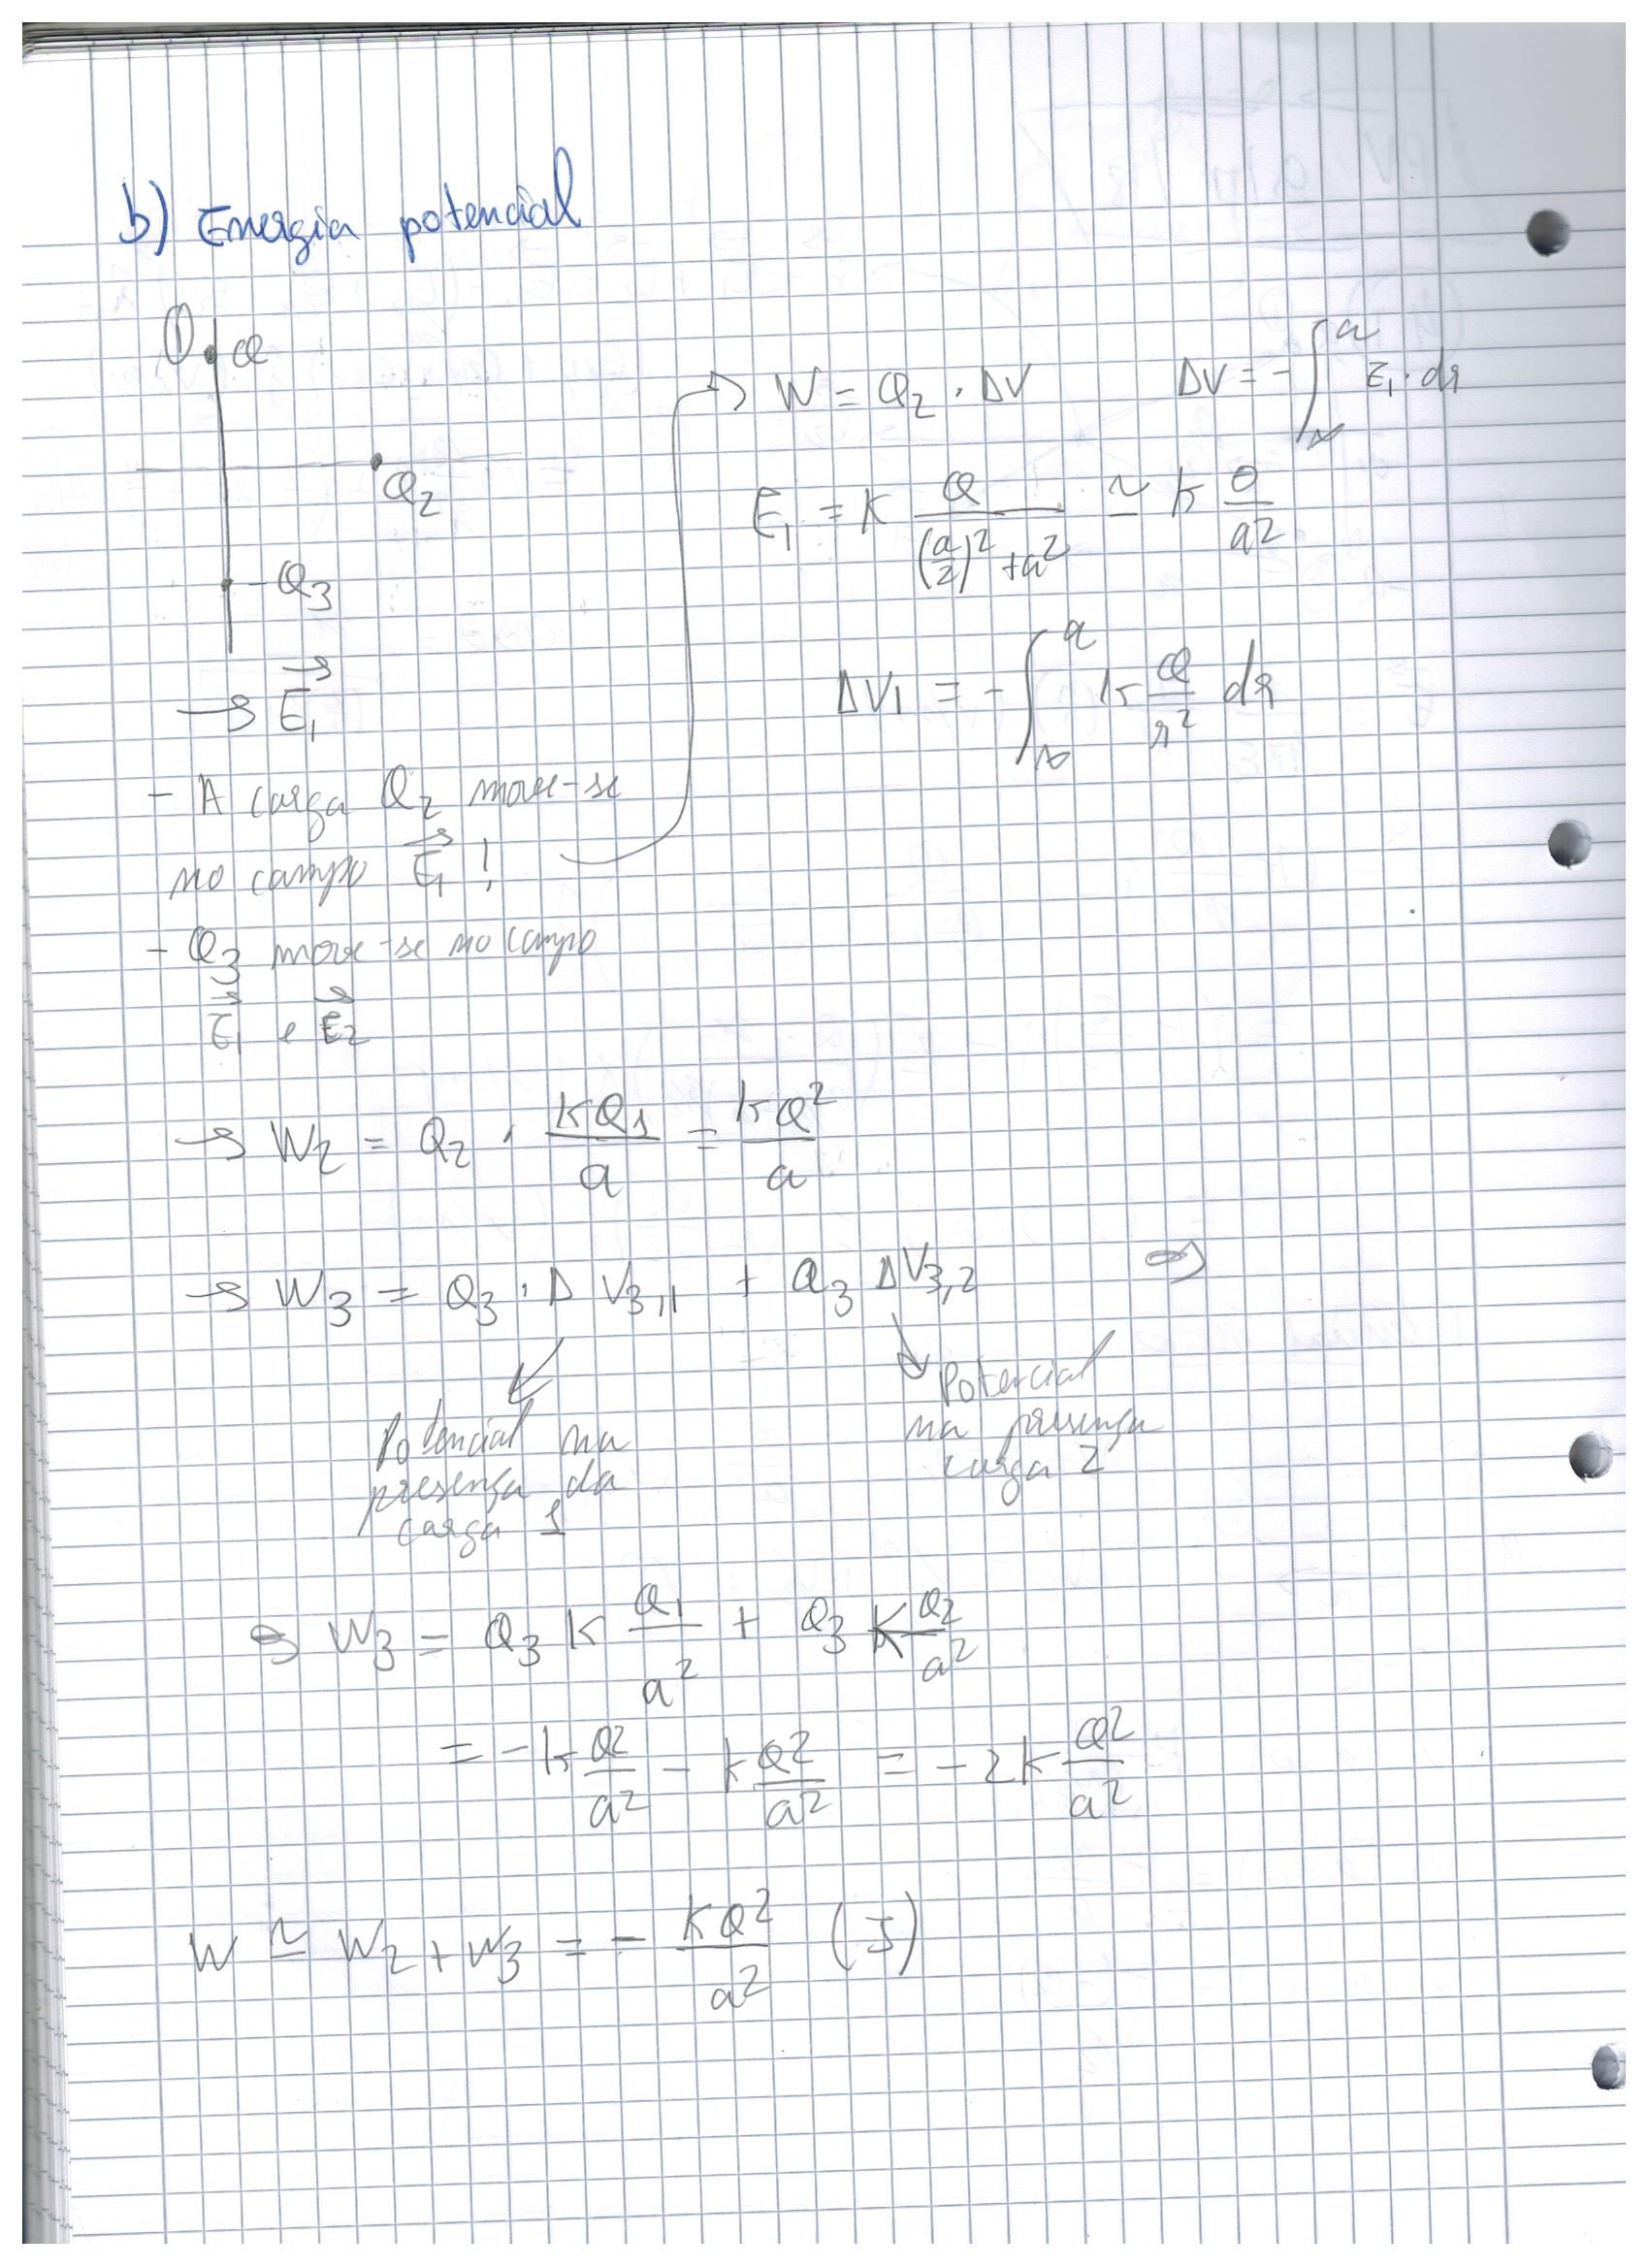 b) Energia potencial
① Q
Q2
-Q3
→ E⃗1
- A carga Q2 move-se
no campo E⃗1 !
- Q3 move-se no campo
E⃗1 e E⃗2
→ W = Q2 . ΔV ΔV = - ∫_∞^a E1 . dr
E1 = K Q/((a/2)² + a²) ≃ K Q/a²
ΔV1 = - ∫_∞^a K Q/r² dr
→ W2 = Q2 . KQ1/a = KQ²/a
→ W3 = Q3 . Δ V3,1 + Q3 ΔV3,2 ⇒
Potencial na
presença da
carga 1
Potencial
na presença
carga 2
⇒ W3 = Q3 K Q1/a² + Q3 K Q2/a²
= - K Q²/a² - K Q²/a² = - 2K Q²/a²
W ≃ W2 + W3 = - KQ²/a² (J)